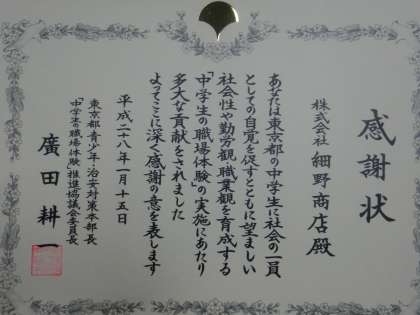 感謝状
株式会社 細野商店殿
あなたは東京都の中学生に社会の一員
としての自覚を促すとともに望ましい
社会性や勤労観・職業観を育成する
「中学生の職場体験」の実施にあたり
多大な貢献をされました
よってここに深く感謝の意を表します
平成二十八年一月十五日
東京都青少年・治安対策本部長
「中学生の職場体験」推進協議会委員長
廣田耕一